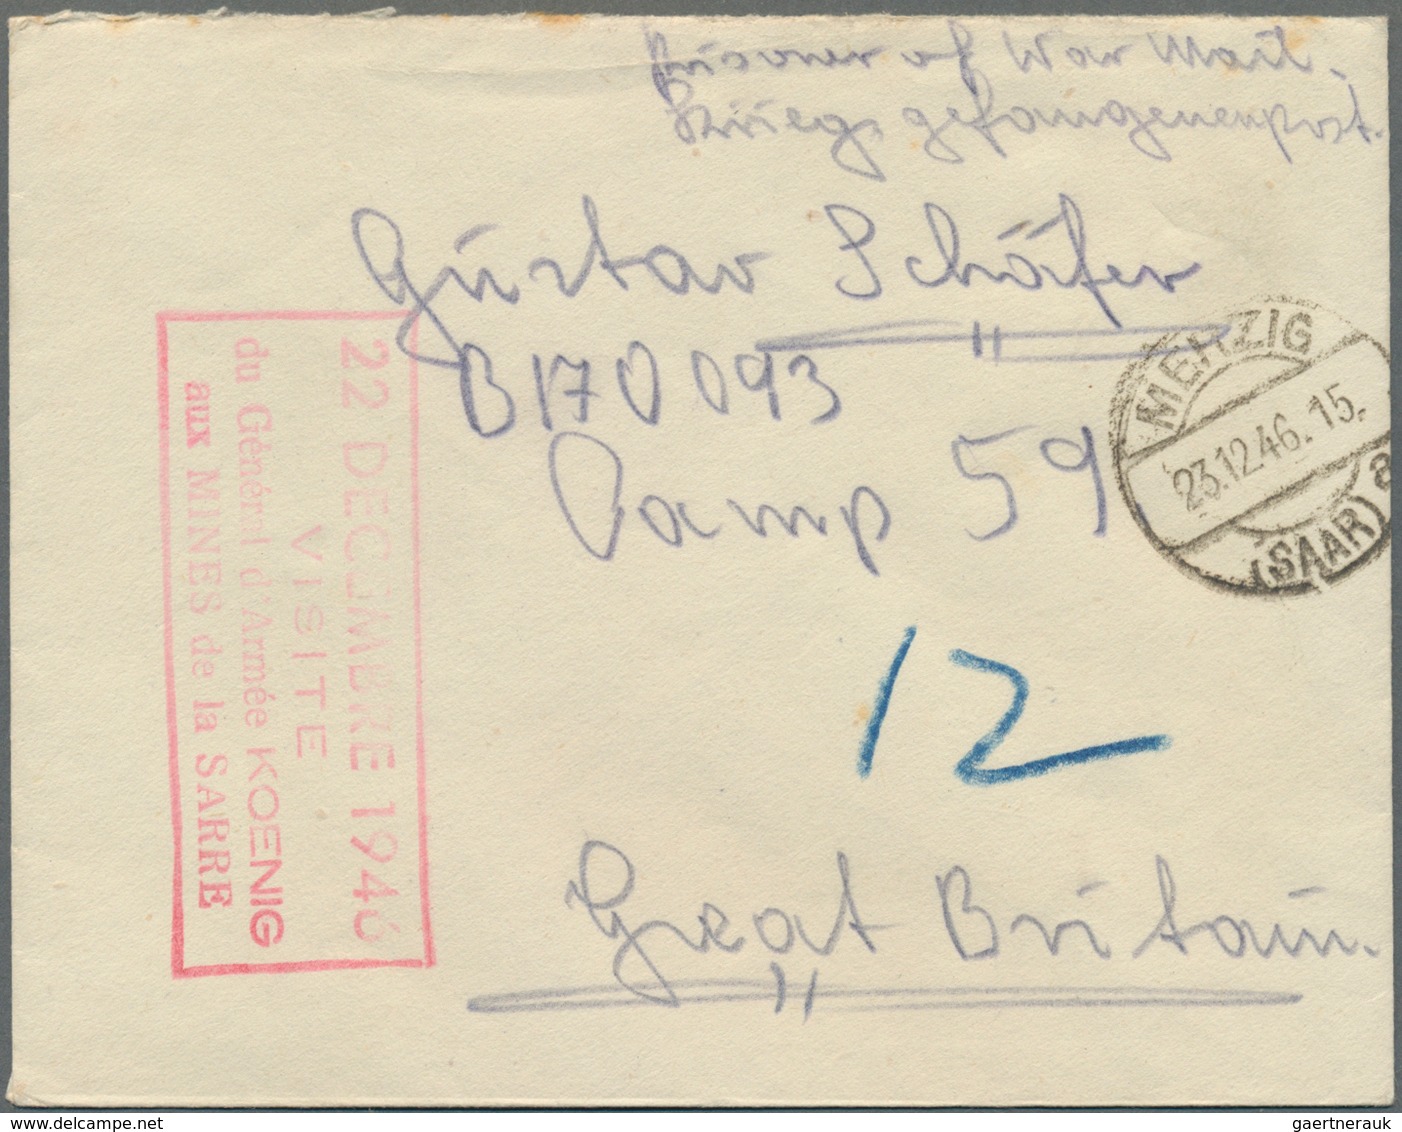 Prisoner of War Mail.
Kriegsgefangenenpost.
Gustav Schäfer
B170093
Camp 59
MERZIG
23.12.46.15.
(SAAR) a
12
Great Britain.
22 DECEMBRE 1946
VISITE
du Général d'Armée KOENIG
aux MINES de la SARRE
www.delcampe.net
gaertnerauk